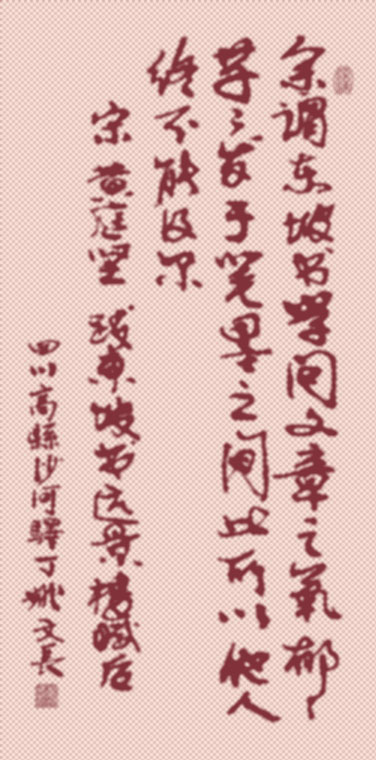 余谓东坡书学问文章之氣郁々
芊々发于笔墨之间此所以他人
终不能及尔
宋 黄庭坚 跋東坡书远景楼赋后
四川高縣沙河驛丁姚文長